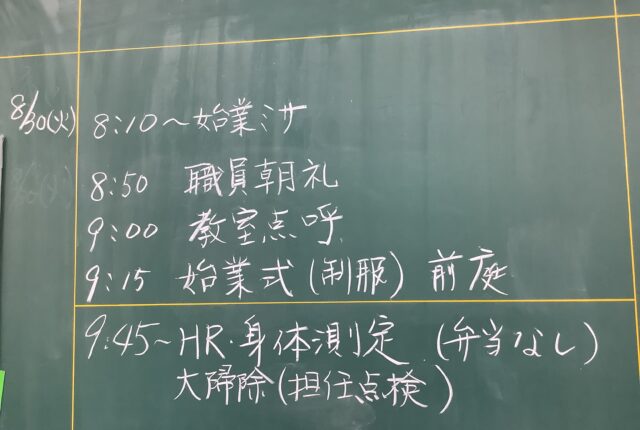 8/30(火) 8:10〜始業ミサ
8:50 職員朝礼
9:00 教室点呼
9:15 始業式(制服) 前庭
9:45〜HR・身体測定 (弁当なし)
大掃除(担任点検)